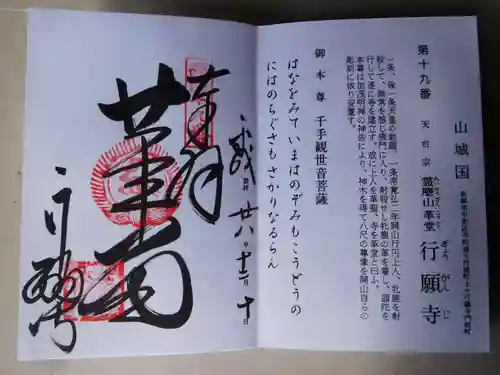 山城国
第十九番 天台宗 霊麀山革堂 行願寺
ぎょう がん じ
一条、後一条天皇の勅願、一条帝寛弘二年開山行円上人、牝鹿を射
殺して、無常を感じ佛門に入り、射殺せし牝鹿の革を着し、頭陀を
行して遂に寺を建立す。故に上人を革聖、寺を革堂と曰ふ。
本尊は加茂明神の神告により、神木を得て八尺の尊像を開山自らの
彫刻に依り安置す。
御本尊 千手観世音菩薩
はなをみて いまはのぞみも こうどうの
にはのちぐさも さかりなるらん
奉拝
平成 廿八年十二月十日
革堂
行願寺